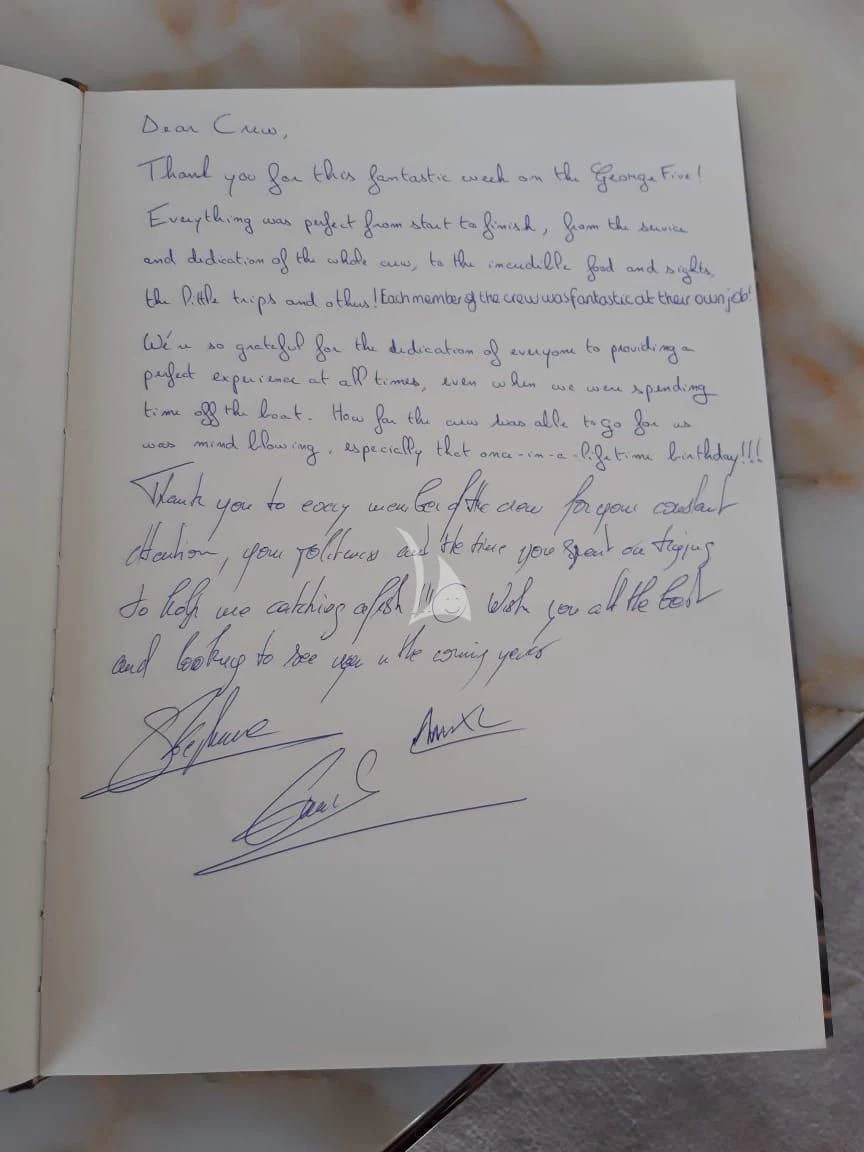 Dear Crew,
Thank you for this fantastic week on the George Five!
Everything was perfect from start to finish, from the service
and dedication of the whole crew, to the incredible food and sights,
the little trips and others! Each member of the crew was fantastic at their own job!
We're so grateful for the dedication of everyone to providing a
perfect experience at all times, even when we were spending
time off the boat. How far the crew was able to go for us
was mind blowing, especially that once-in-a-lifetime birthday!!!
Thank you to every member of the crew for your constant
attention, your politeness and the time you spent on trying
to help me catching a fish!!! Wish you all the best
and looking to see you in the coming years
Stephane